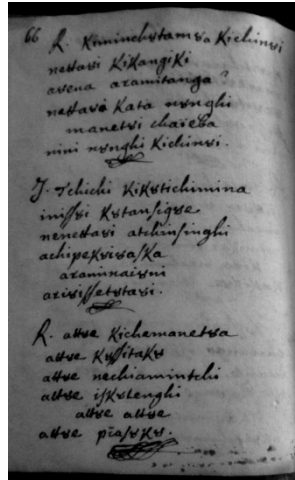 66 R. Kiminchȣtamȣa Kichinȣi
nettaȣi KiKangiKi
aȣena aramitanga?
nettaȣi Kata nȣnghi
manetȣi chaieba
nini nȣnghi Kichinȣi.
J. Tchichi KiKȣtichimina
inissȣi Kȣtansigȣe
nenettaȣi atchinsinghi
achipeKȣiȣasKa
araminaiȣni
aȣiȣissetȣtaȣi.
R. attȣe Kichemanetȣa
attȣe KȣssitaKȣ
attȣe nechiamintchi
attȣe isKȣtenghi
attȣe attȣe
attȣe piasKȣ.